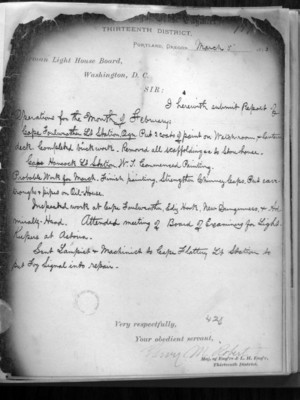 THIRTEENTH DISTRICT,
PORTLAND, OREGON March
Light House Board,
Washington, D. C.
SIR:
I herewith submit Report of
Operations for the Month of February.
Cape Foulweather Lt Station Ogn. Put 2 coats of paint on Watchroom &
deck. Completed brick work. Removed all scaffolding to Store house.
Station. W. T. Commenced Painting.
Probable Work for March. Finish painting, Strengthen Chimney Caps, Put eave
troughs & pipes on Oil House.
Inspected work at Cape Foulweather, Ediz Hook, New Dungeness, &
Head. Attended meeting of Board of Examiners for Light
Keepers at Astoria.
Sent Lampist & Machinist to Cape Flattery Lt Station to
put Fog Signal into repair.
Very respectfully,
Your obedient servant,
Maj. of Engrs & L. H. Engr.
Thirteenth District.